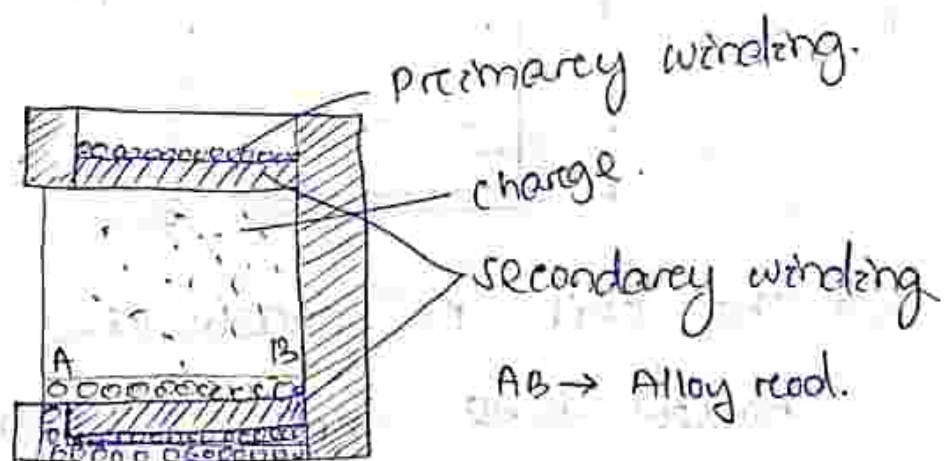 Preimarcy winding.
charge.
Secondarcy winding
A B
AB → Alloy reod.